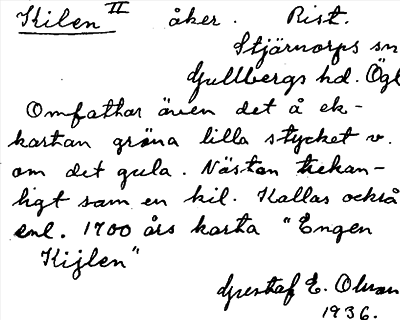 Kilen II åker. Rist.
Stjärnorps sn
Gullbergs hd. Ögl
Omfattar även det å ek-
kartan gröna lilla stycket v.
om det gula. Nästan trekan-
ligt som en kil. Kallas också
enl. 1700 års karta "Engen
Kijlen"
Gustaf E. Olsson
1936.